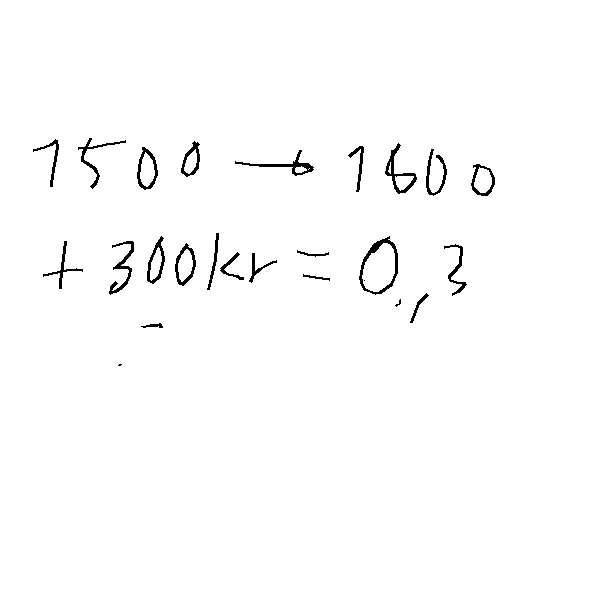 1500 → 1800
+ 300kr = 0,3